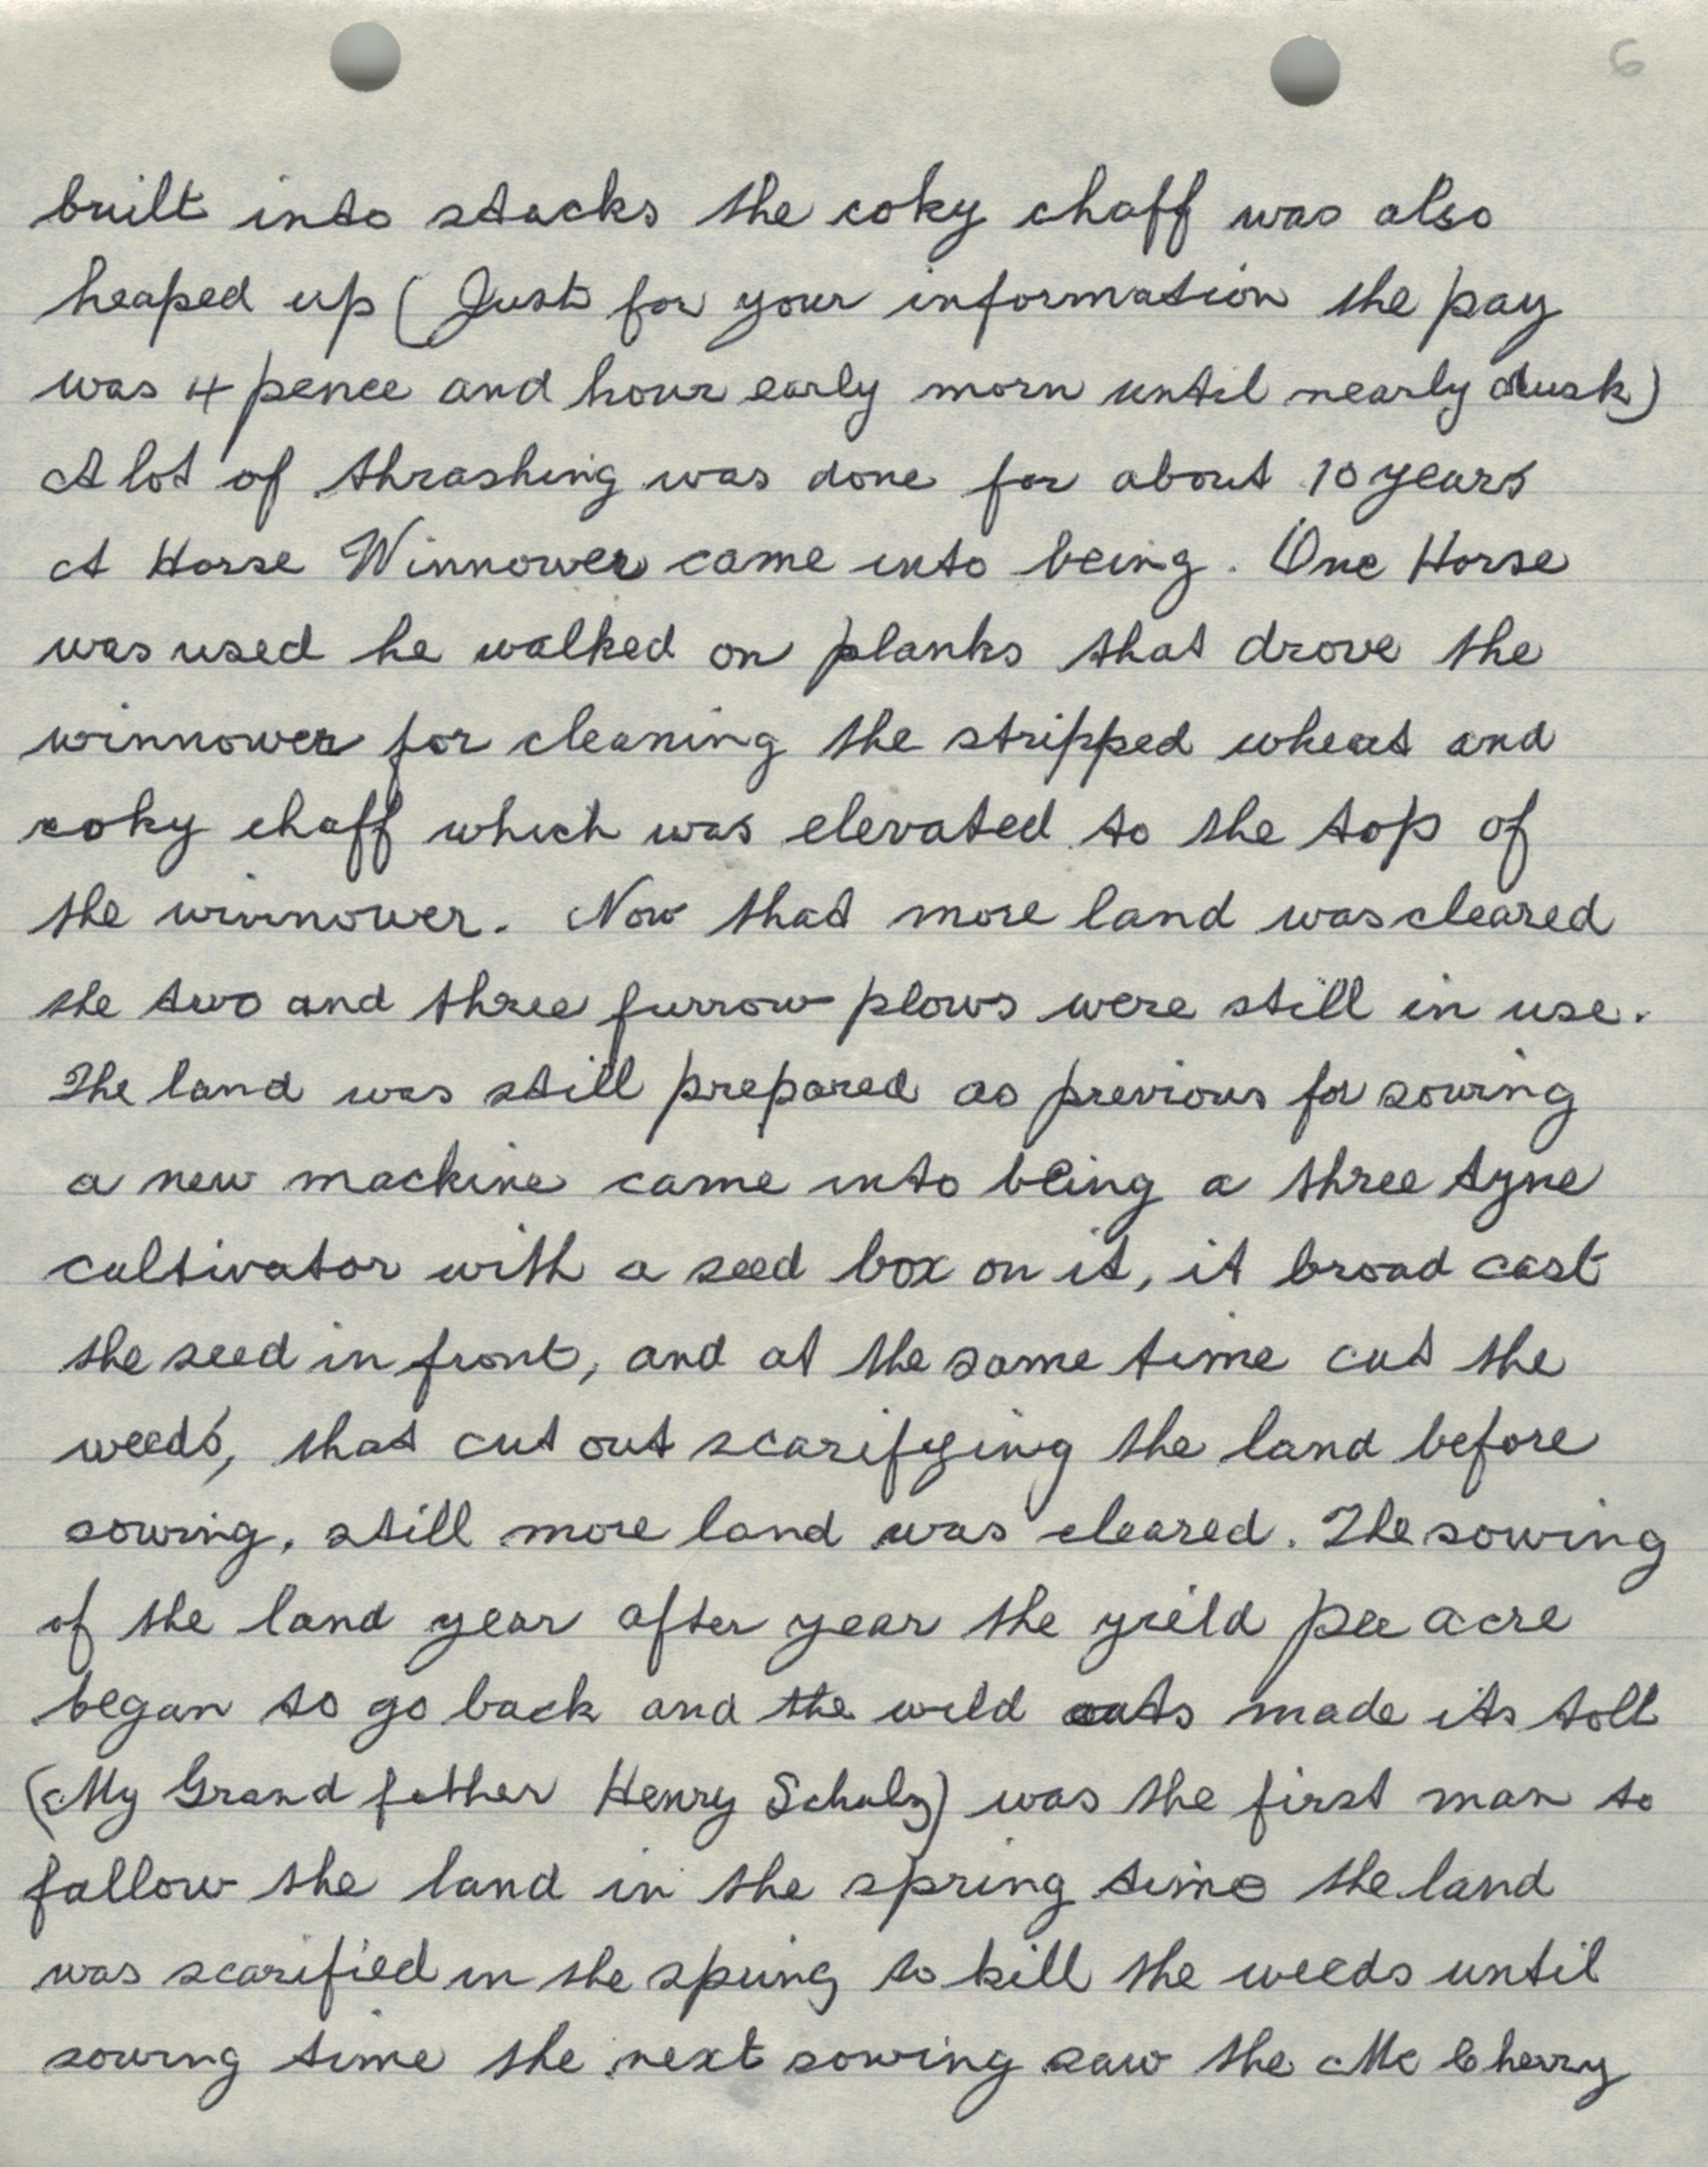 6
built into stacks the coky chaff was also
heaped up (Just for your information the pay
was 4 pence and hour early morn until nearly dusk)
A lot of thrashing was done for about 10 years
A Horse Winnower came into being. One Horse
was used he walked on planks that drove the
winnower for cleaning the stripped wheat and
coky chaff which was elevated to the top of
the winnower. Now that more land was cleared
the two and three furrow plows were still in use.
The land was still prepared as previous for sowing
a new machine came into being a three tyne
cultivator with a seed box on it, it broad cast
the seed in front, and at the same time cut the
weeds, that cut out scarifying the land before
sowing, still more land was cleared. The sowing
of the land year after year the yield per acre
began to go back and the wild oats made its toll
(My Grand father Henry Schulz) was the first man to
fallow the land in the spring time the land
was scarified in the spring to kill the weeds until
sowing time the next sowing saw the Mc Cherry